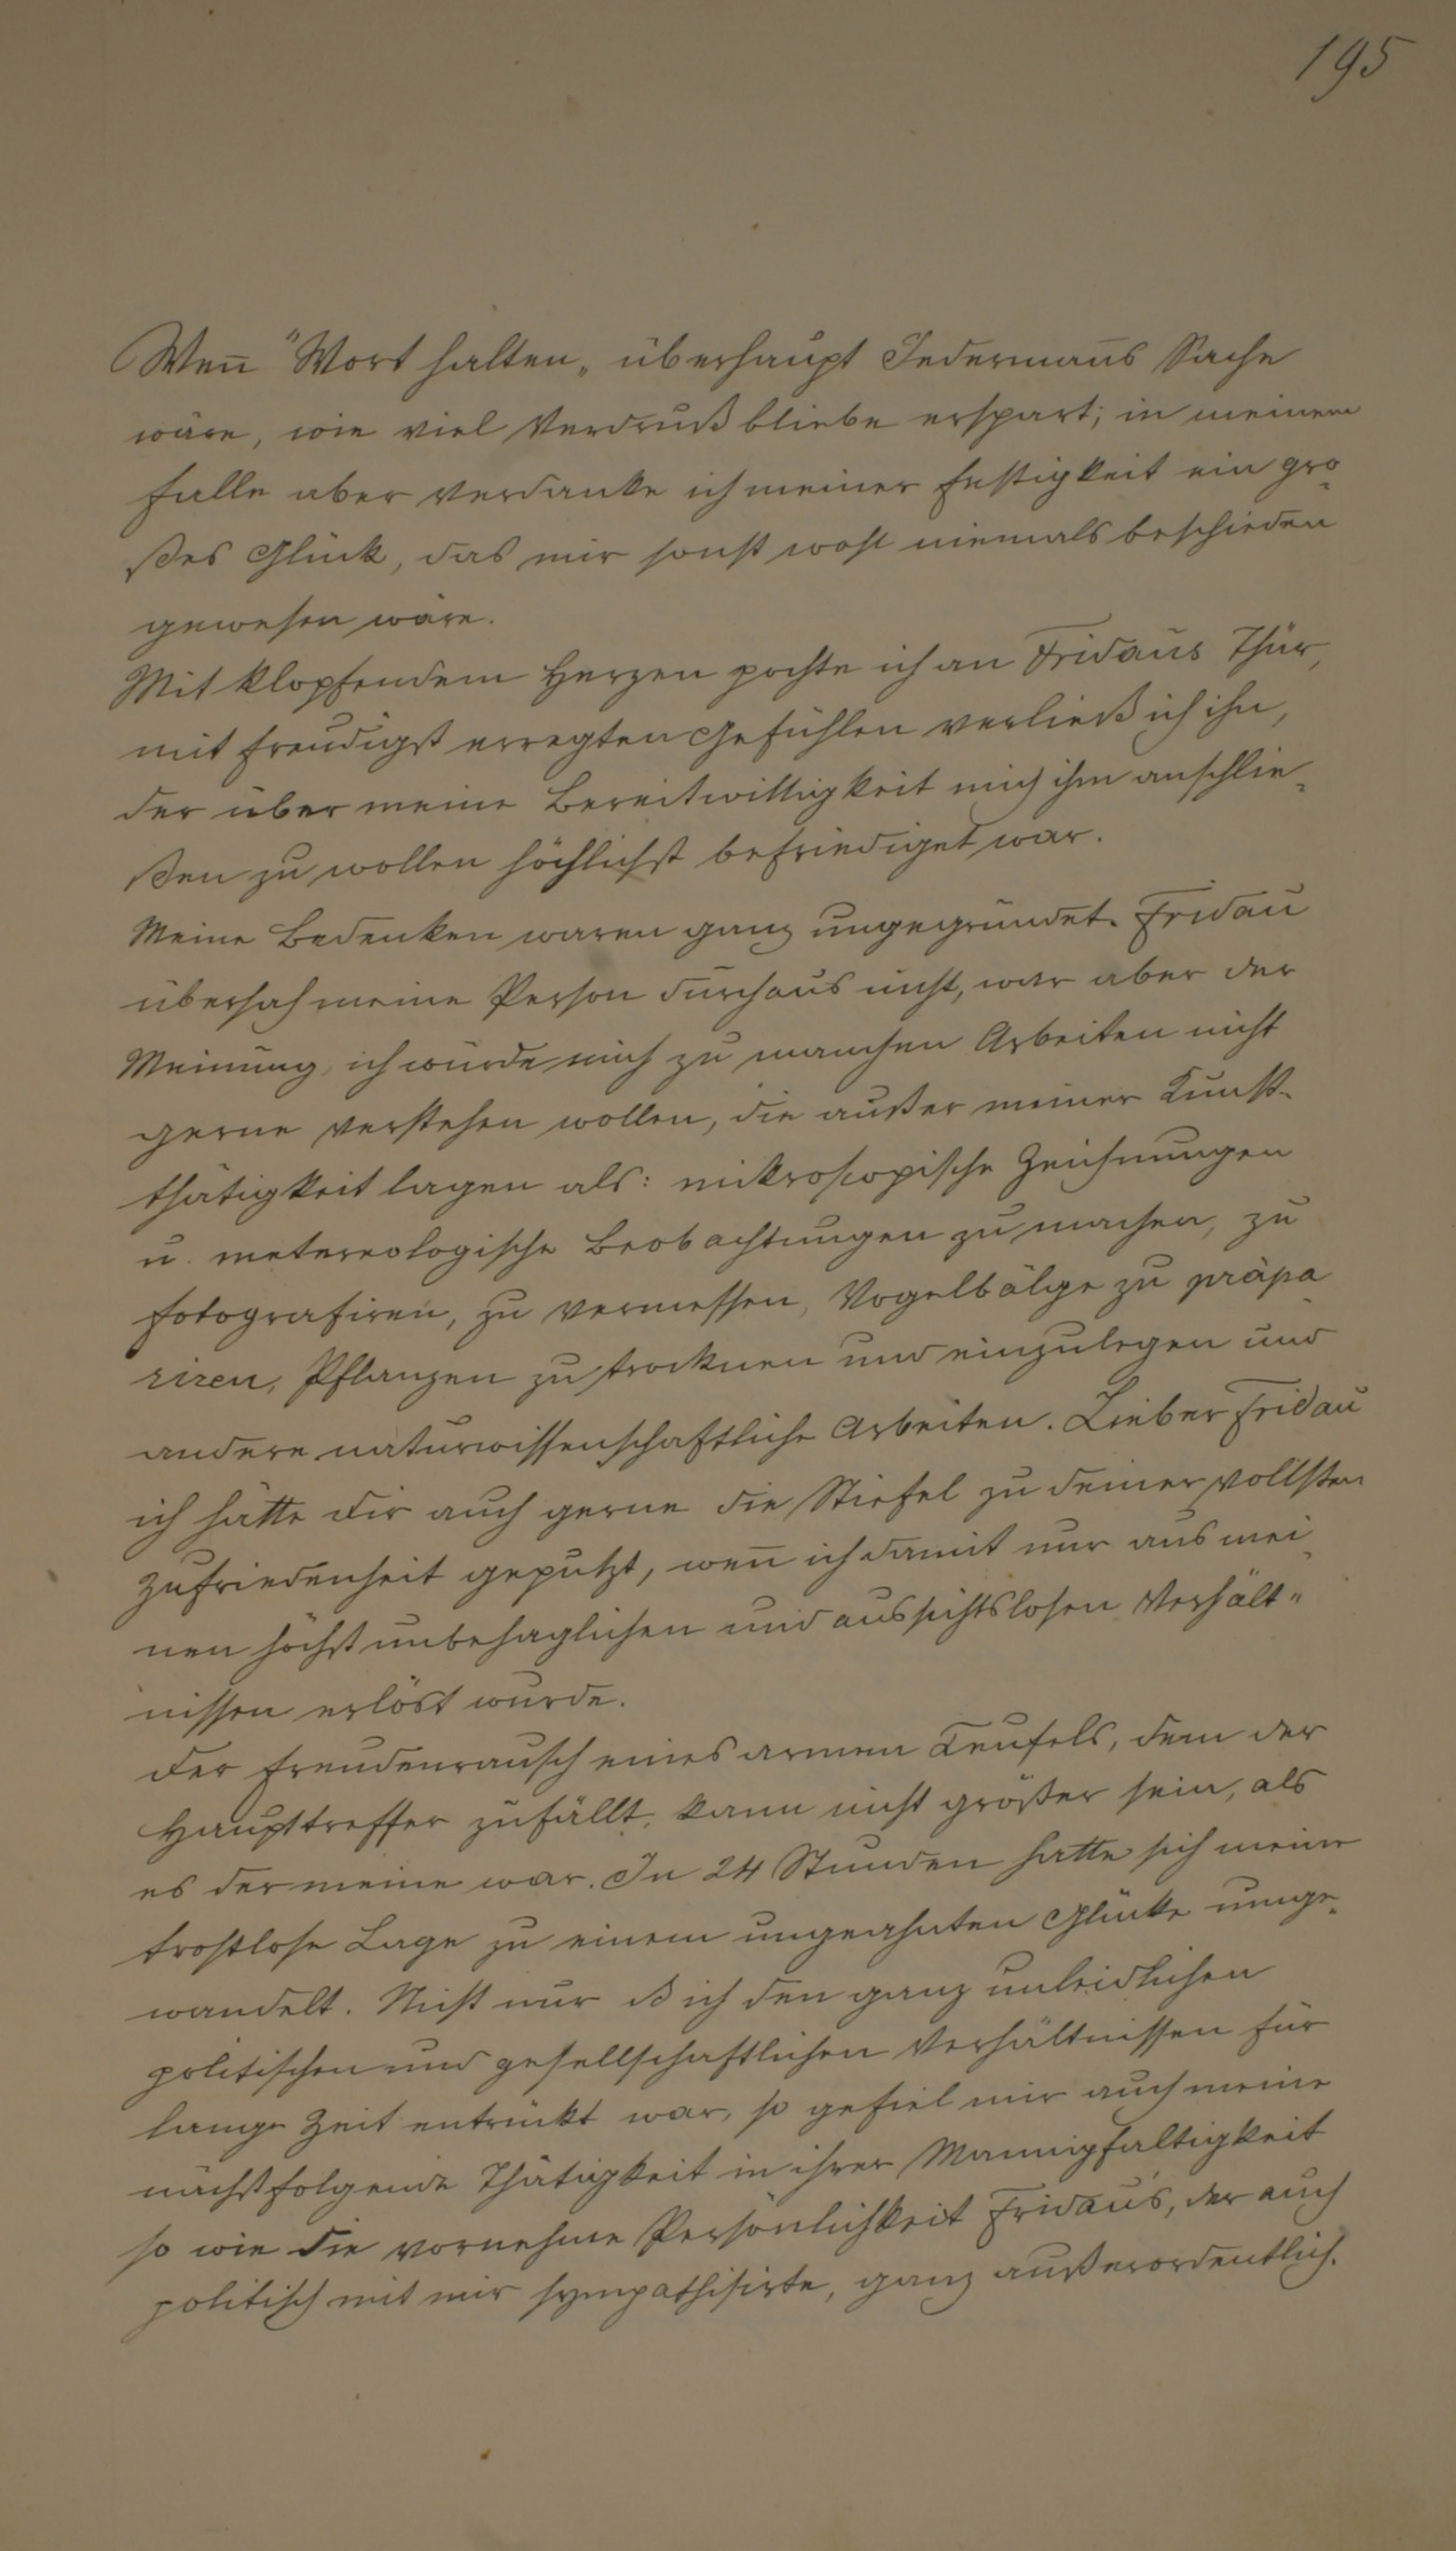 195
Wen̅ "Wort halten„ überhaupt Jederman̅s Sache
wäre, wie viel Verdruß bliebe erspart; in meinem
Falle aber verdanke ich meiner Festigkeit ein gro¬
ßes Glück, das mir sonst wohl niemals beschieden
gewesen wäre.
Mit klopfendem Herzen pochte ich an Fridaus Thür,
mit freudigst erregten Gefühlen verließ ich ihn,
der über meine Bereitwilligkeit mich ihm anschlie¬
ßen zu wollen höchlichst befriediget war.
Meine Bedenken waren ganz ungegründet. Fridau
übersah meine Person durchaus nicht, war aber der
Meinung, ich würde mich zu manchen Arbeiten nicht
gerne verstehen wollen, die außer meiner Kunst-
thätigkeit lagen als: mikroscopische Zeichnungen
u. metereologische Beobachtungen zu machen, zu
fotografiren, zu vermessen, Vogelbälge zu präpa¬
riren, Pflanzen zu trocknen und einzulegen und
andere naturwissenschaftliche Arbeiten. Lieber Fridau
ich hätte dir auch gerne die Stiefel zu deiner vollsten
Zufriedenheit geputzt, wen̅ ich damit nur aus mei¬
nen höchst unbehaglichen und aussichtslosen Verhält"
nissen erlöst wurde.
Der Freudenrausch eines armen Teufels, dem der
Haupttreffer zufällt, kann nicht größer sein, als
es der meine war. In 24 Stunden hatte sich meine
trostlose Lage zu einem ungeahnten Glücke umge¬
wandelt. Nicht nur ß ich den ganz unleidlichen
politischen und gesellschaftlichen Verhältnissen für
lange Zeit entrückt war, so gefiel mir auch meine
nächstfolgende Thätigkeit in ihrer Mannigfaltigkeit
so wie die vornehme Persönlichkeit Fridau's, der auch
politisch mit mir sympathisirte, ganz außerordentlich.